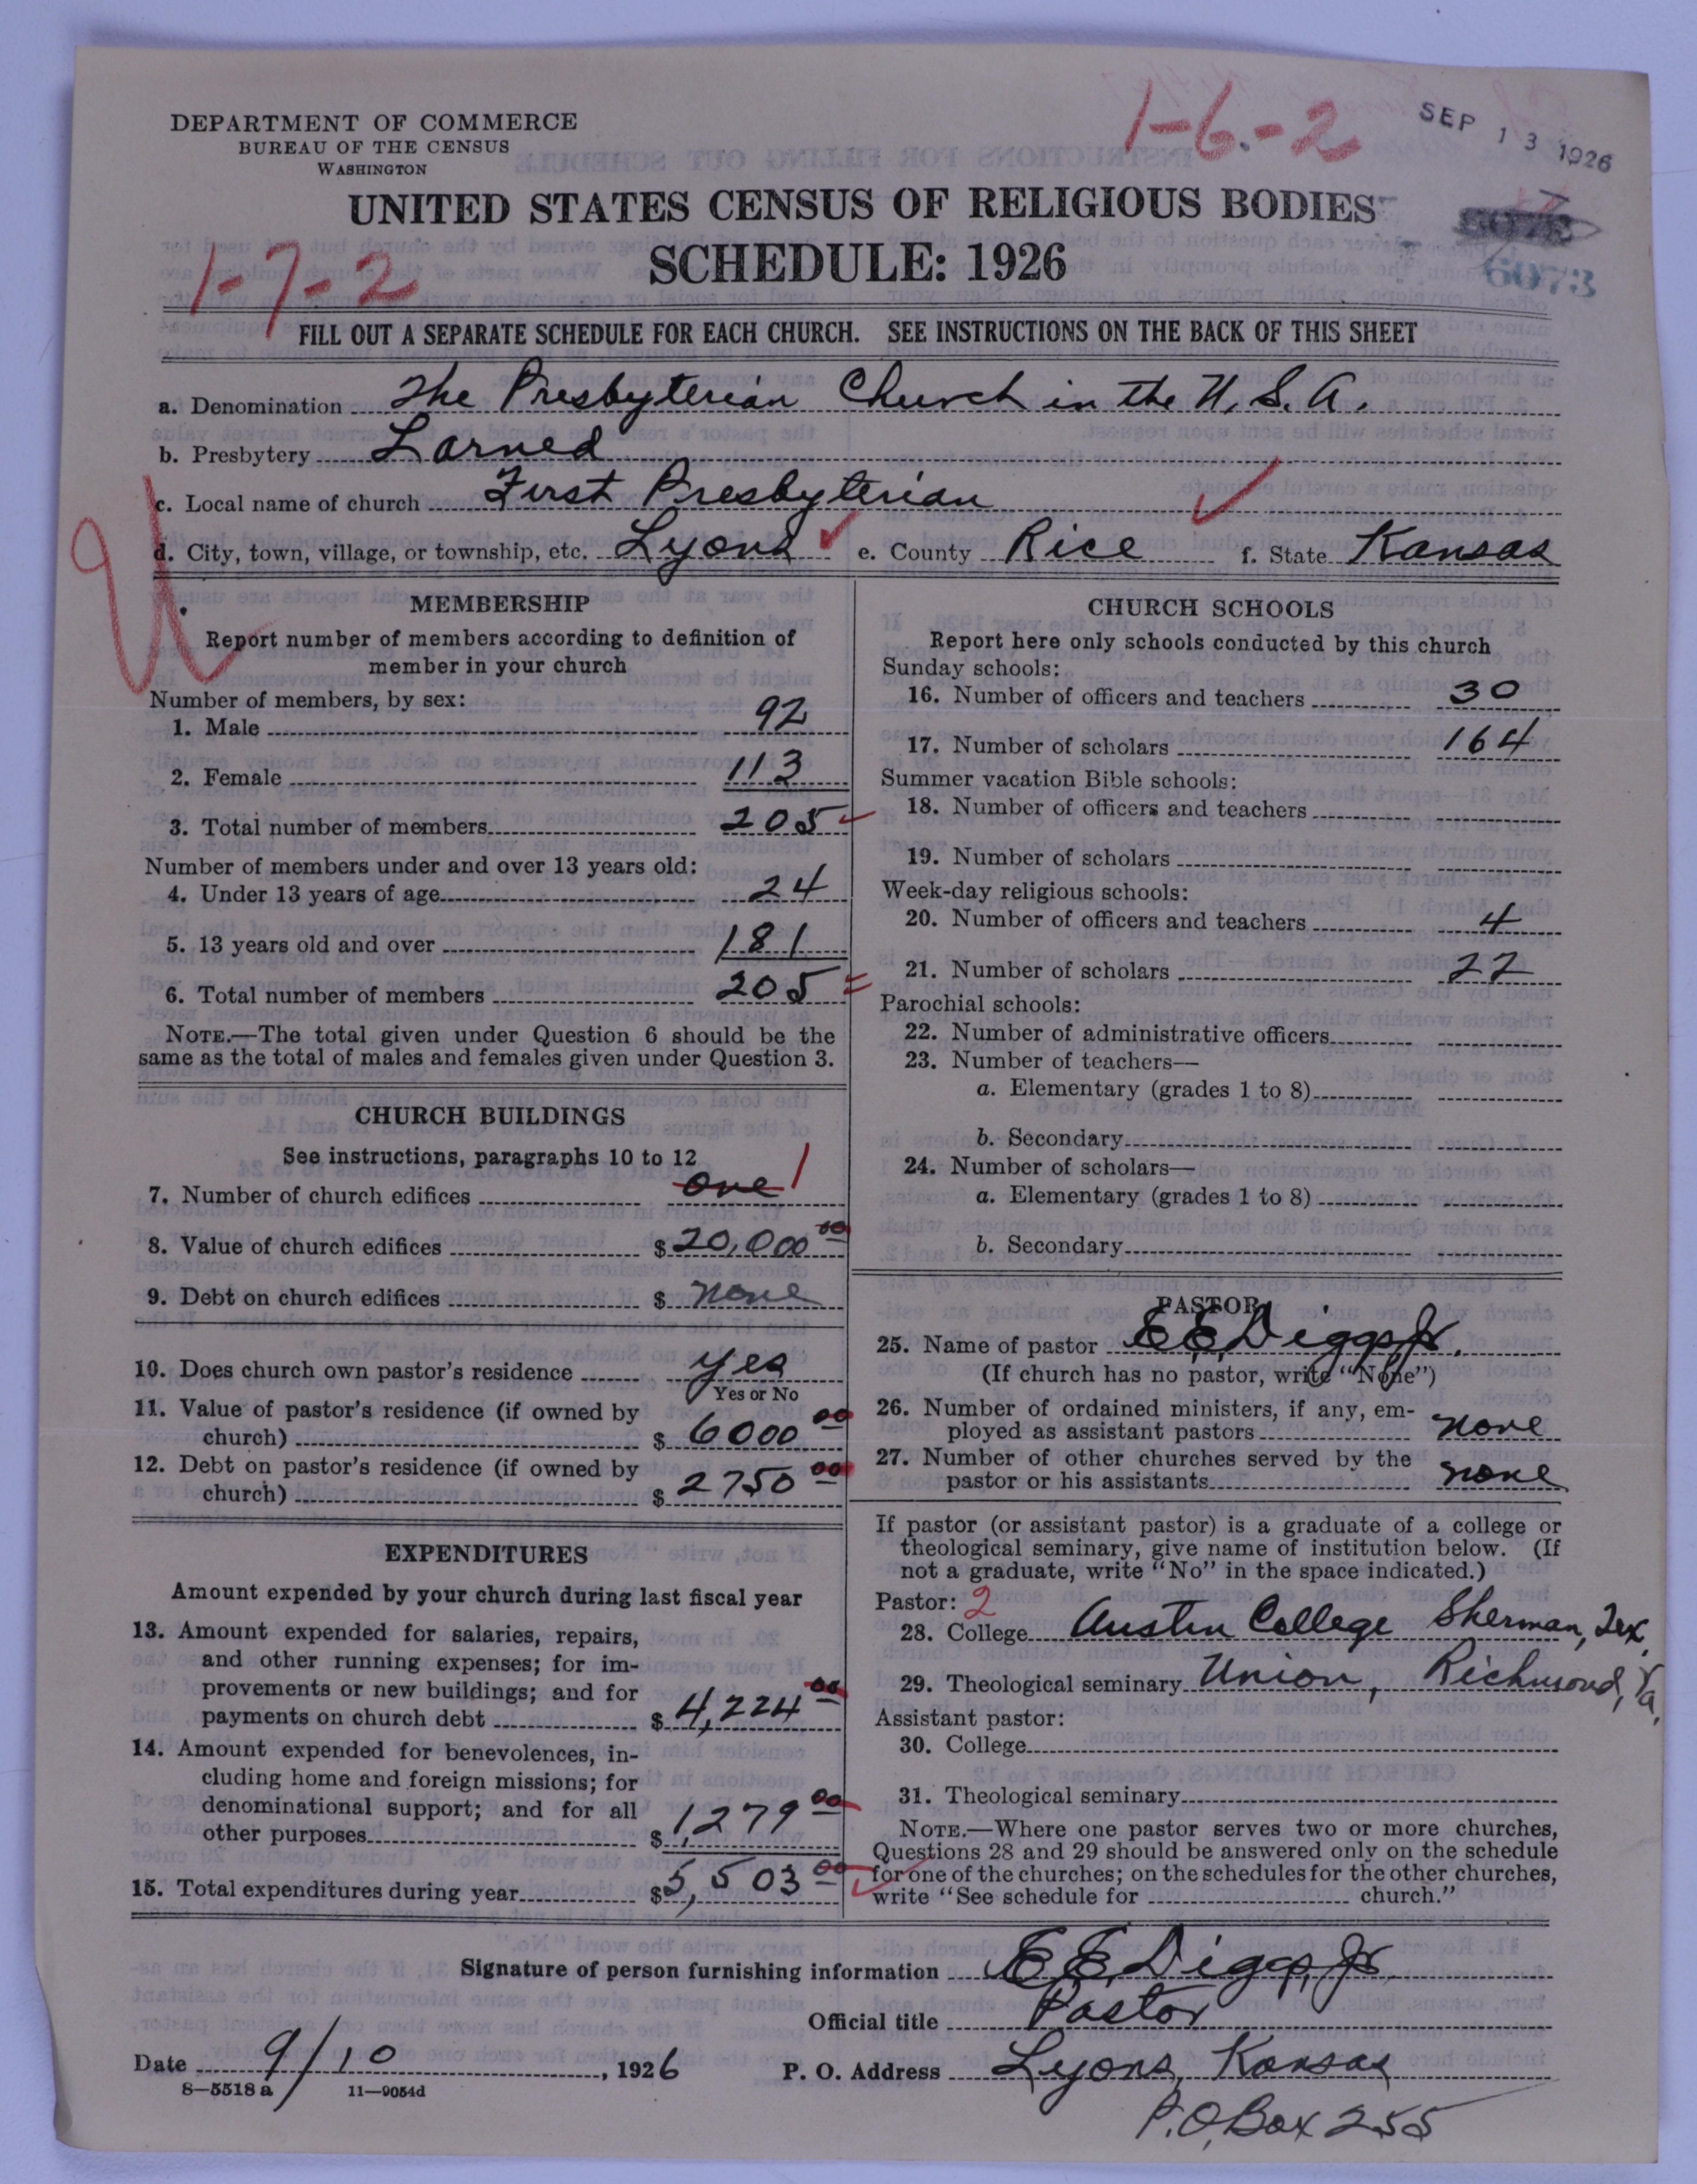 1-6-2
SEP 13 1926
DEPARTMENT OF COMMERCE
BUREAU OF THE CENSUS
WASHINGTON
UNITED STATES CENSUS OF RELIGIOUS BODIES
SCHEDULE: 1926
6073
1-7-2
FILL OUT A SEPARATE SCHEDULE FOR EACH CHURCH. SEE INSTRUCTIONS ON THE BACK OF THIS SHEET
a. Denomination The Presbyterian Church in the U.S.A.
b. Presbytery Larned
c. Local name of church First Presbyterian
d. City, town, village, or township, etc. Lyons e. County Rice f. State Kansas
MEMBERSHIP
Report number of members according to definition of
member in your church
Number of members, by sex:
1. Male 92
2. Female 113
3. Total number of members 205
Number of members under and over 13 years old:
4. Under 13 years of age 24
5. 13 years old and over 181
6. Total number of members 205
NOTE.—The total given under Question 6 should be the
same as the total of males and females given under Question 3.
CHURCH BUILDINGS
See instructions, paragraphs 10 to 12
7. Number of church edifices one 1
8. Value of church edifices $20,000 00
9. Debt on church edifices $ none
10. Does church own pastor's residence yes
Yes or No
11. Value of pastor's residence (if owned by
church) $ 6000 00
12. Debt on pastor's residence (if owned by
church) $ 2750 00
EXPENDITURES
Amount expended by your church during last fiscal year
13. Amount expended for salaries, repairs,
and other running expenses; for im-
provements or new buildings; and for
payments on church debt $ 4,224 00
14. Amount expended for benevolences, in-
cluding home and foreign missions; for
denominational support; and for all
other purposes $ 1,279 00
15. Total expenditures during year $5,503 00
CHURCH SCHOOLS
Report here only schools conducted by this church
Sunday schools:
16. Number of officers and teachers 30
17. Number of scholars 164
Summer vacation Bible schools:
18. Number of officers and teachers
19. Number of scholars
Week-day religious schools:
20. Number of officers and teachers 4
21. Number of scholars 22
Parochial schools:
22. Number of administrative officers
23. Number of teachers—
a. Elementary (grades 1 to 8)
b. Secondary
24. Number of scholars—
a. Elementary (grades 1 to 8)
b. Secondary
PASTOR
25. Name of pastor E.E. Diggs, Jr.
(If church has no pastor, write "None")
26. Number of ordained ministers, if any, em-
ployed as assistant pastors none
27. Number of other churches served by the
pastor or his assistants none
If pastor (or assistant pastor) is a graduate of a college or
theological seminary, give name of institution below. (If
not a graduate, write "No" in the space indicated.)
Pastor: 2
28. College Austin College Sherman, Tex.
29. Theological seminary Union, Richmond, Va.
Assistant pastor:
30. College
31. Theological seminary
NOTE.—Where one pastor serves two or more churches,
Questions 28 and 29 should be answered only on the schedule
for one of the churches; on the schedules for the other churches,
write "See schedule for church."
Signature of person furnishing information E.E. Diggs, Jr.
Official title Pastor
Date 9/10, 1926 P. O. Address Lyons, Kansas
8—5518 a 11—9054d
P.O. Box 255